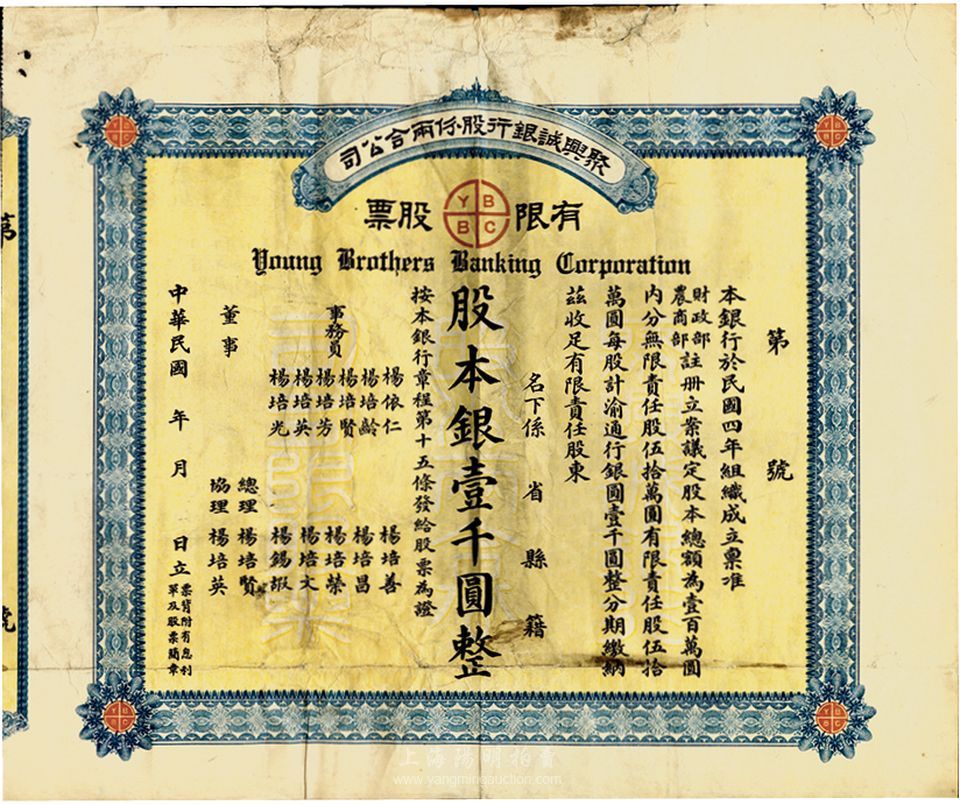 聚興誠銀行股份兩合公司
有限股票
Y B
B C
Young Brothers Banking Corporation
第 號
本銀行於民國四年組織成立禀准
財政部
農商部
註册立案議定股本總額為壹百萬圓
內分無限責任股伍拾萬圓有限責任股伍拾
萬圓每股計渝通行銀圓壹千圓整分期繳納
茲收足有限責任股東
名下係 省 縣 籍
股本銀壹千圓整
按本銀行章程第十五條發給股票為證
事務員
楊依仁
楊培齡
楊培賢
楊培芳
楊培英
楊培光
董事
楊培善
楊培昌
楊培榮
楊培文
楊錫嘏
總理 楊培賢
協理 楊培英
中華民國 年 月 日立
票背附有息利
單及股票簡章
第
號
上海陽明拍賣
www.yangmingauction.com